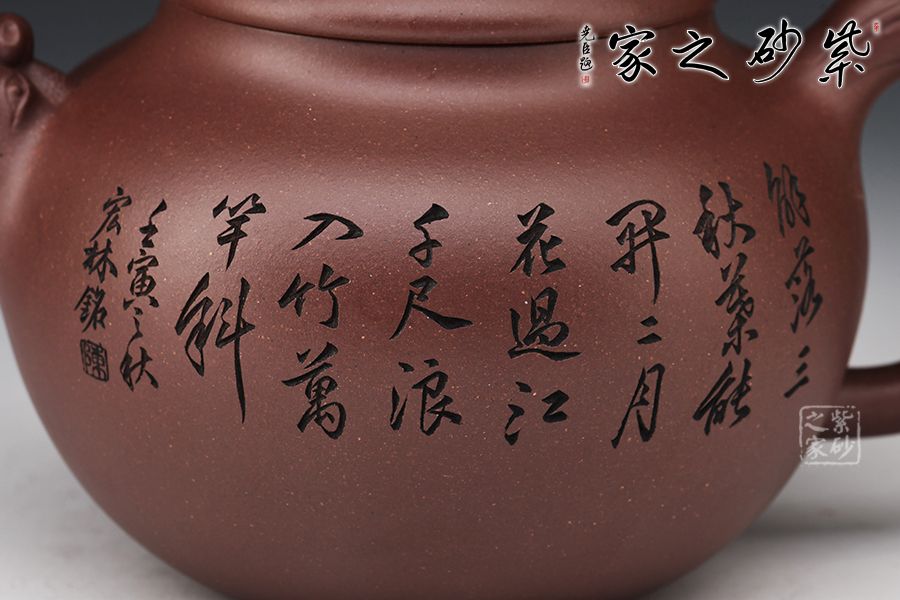 紫砂之家
堯臣題
解落三
秋葉能
開二月
花過江
千尺浪
入竹萬
竿斜
壬寅之秋
宏林銘
紫砂
之家